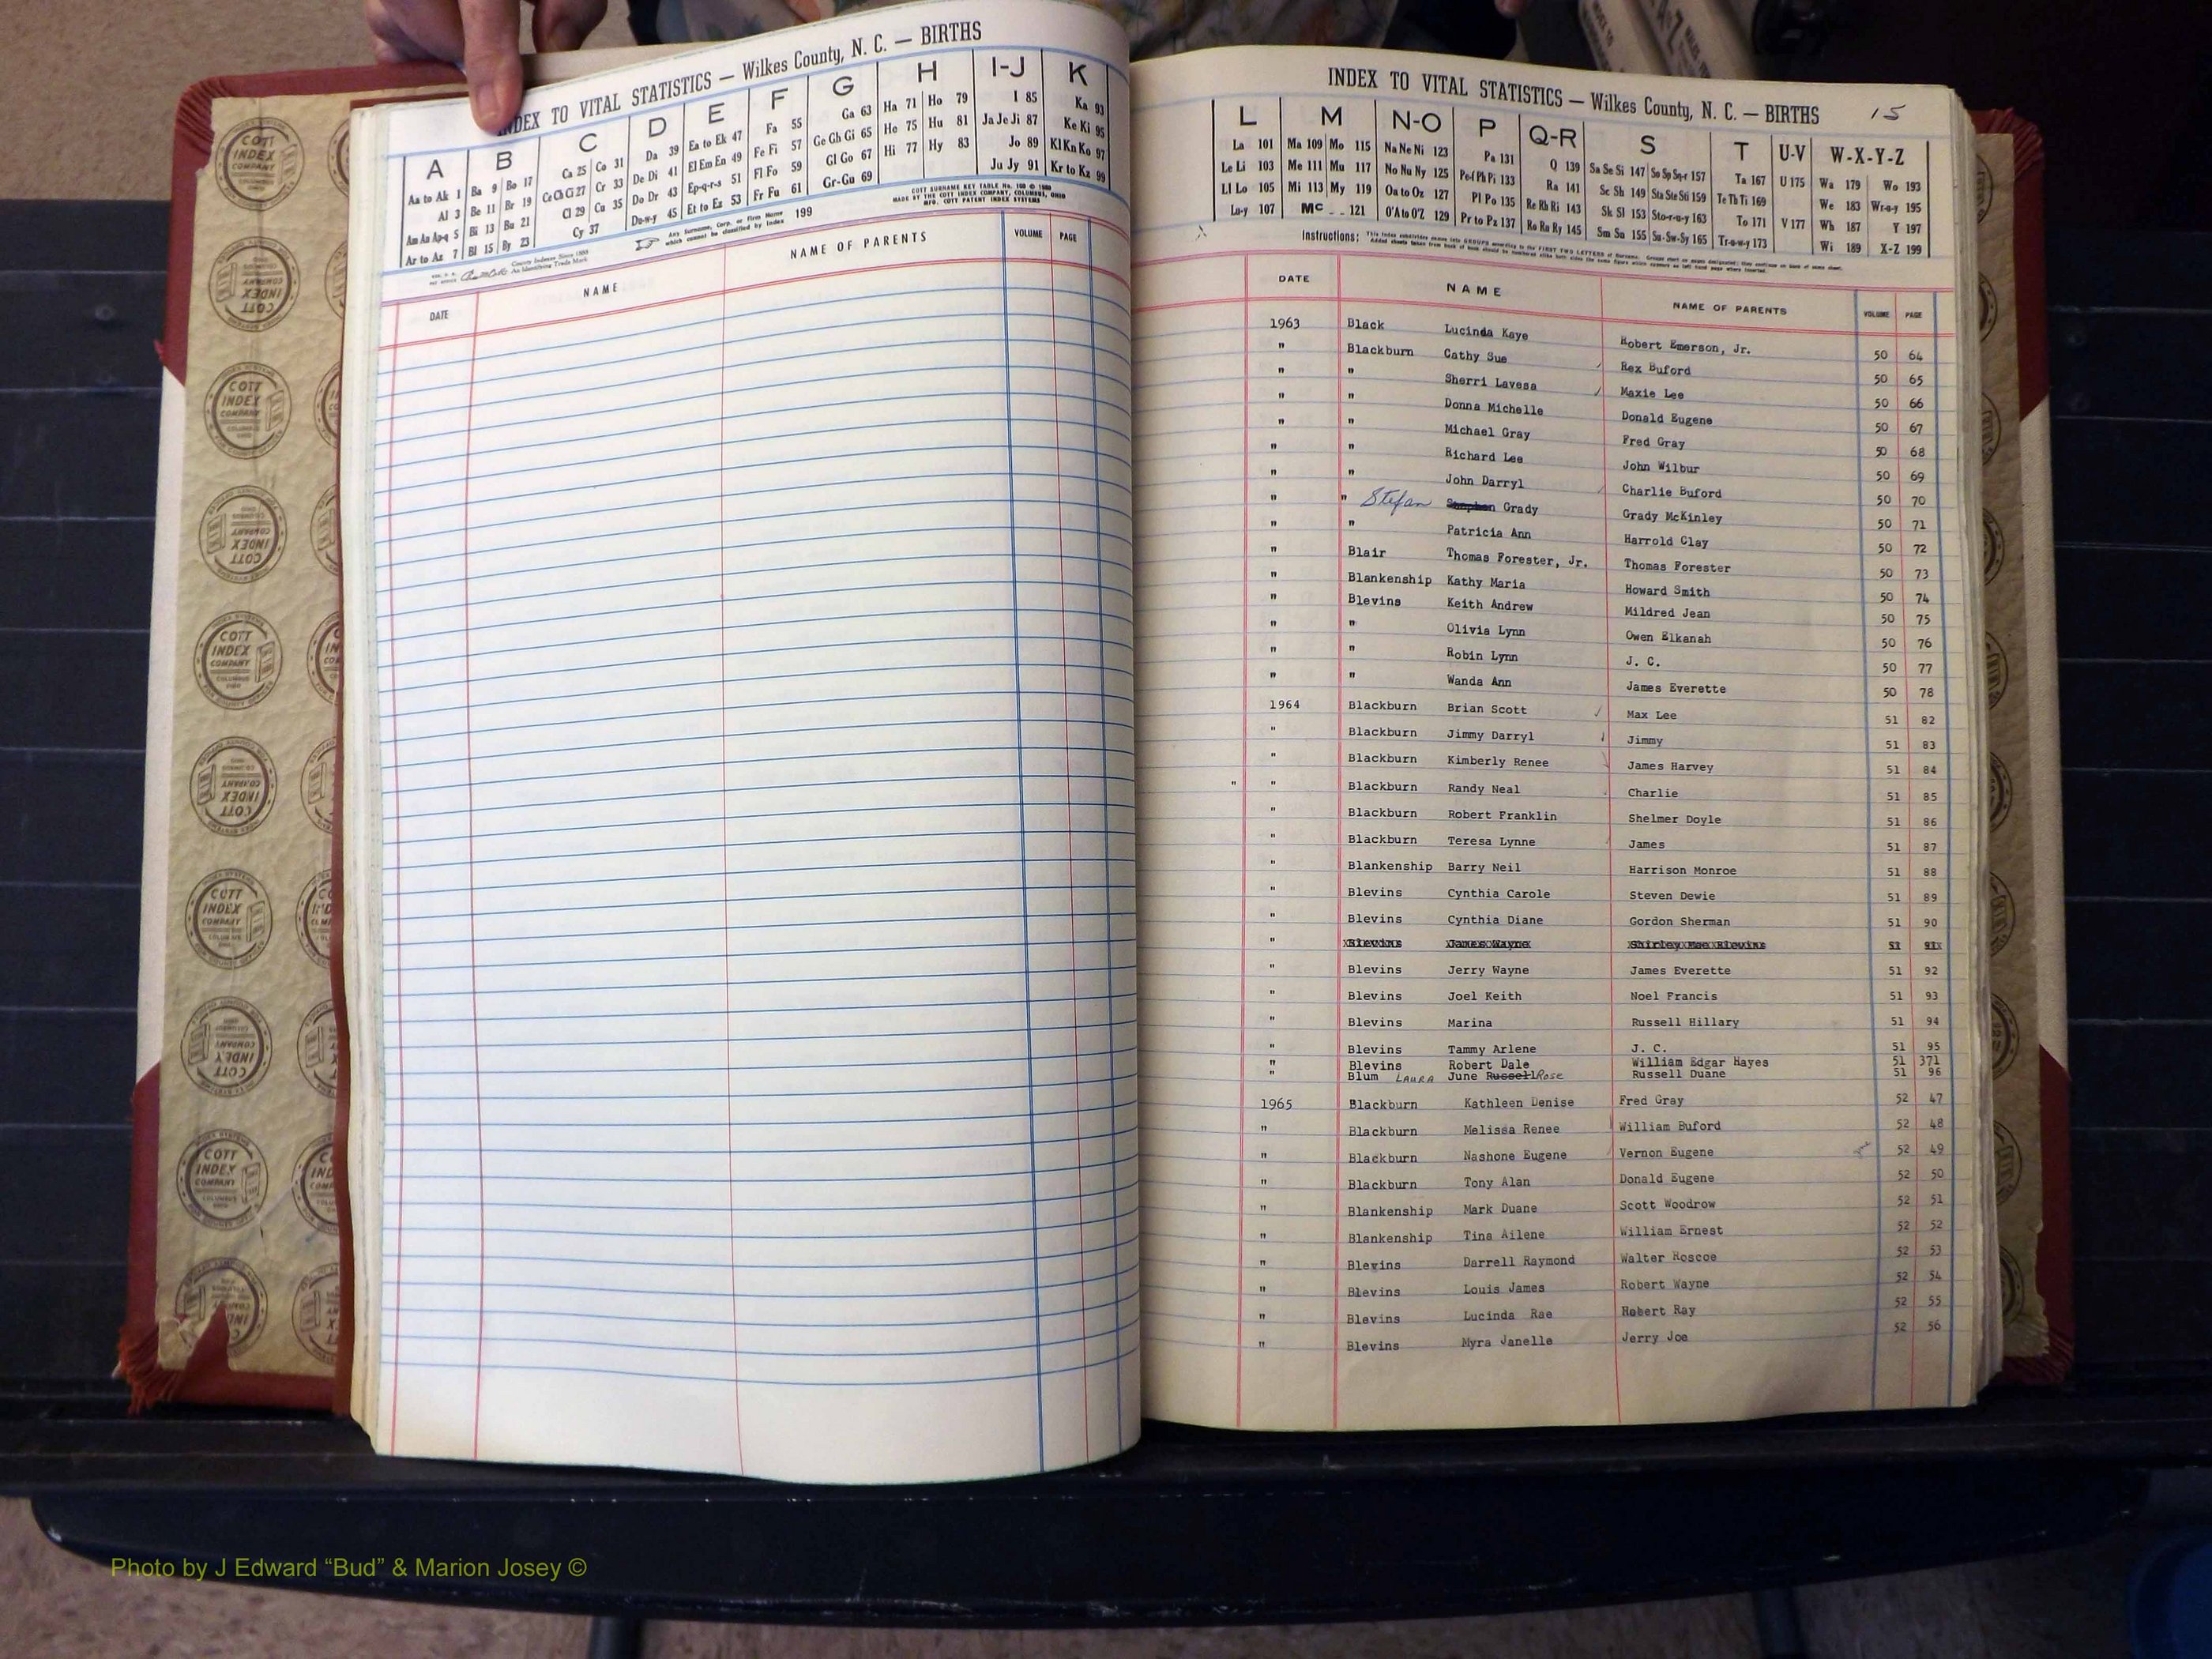 INDEX TO VITAL STATISTICS — Wilkes County, N. C. — BIRTHS
A B C D E F G H I-J K
Aa to Ak 1 Ba 9 Bo 17 Ca 25 Co 31 Da 39 Ea to Ek 47 Fa 55 Ga 63 Ha 71 Ho 79 I 85 Ka 93
Al 3 Be 11 Br 19 Ce Ch Ci 27 Cr 33 De Di 41 El Em En 49 Fe Fi 57 Ge Gh Gi 65 He 75 Hu 81 Ja Je Ji 87 Ke Ki 95
Am An Ap-q 5 Bi 13 Bu 21 Cl 29 Cu 35 Do Dr 43 Ep-q-r-s 51 Fl Fo 59 Gl Go 67 Hi 77 Hy 83 Jo 89 Kl Kn Ko 97
Ar to Az 7 Bl 15 By 23 Cy 37 Du-w-y 45 Et to Ez 53 Fr Fu 61 Gr-Gu 69 Ju Jy 91 Kr to Kz 99
Any Surname, Corp. or Firm Name which cannot be classified by Index 199
COTT SURNAME KEY TABLE No. 100 © 1950
MADE BY THE COTT INDEX COMPANY, COLUMBUS, OHIO
MFG. COTT PATENT INDEX SYSTEMS
County Indexes Since 1888
An Identifying Trade Mark
DATE NAME NAME OF PARENTS VOLUME PAGE
INDEX TO VITAL STATISTICS — Wilkes County, N. C. — BIRTHS 15
L M N-O P Q-R S T U-V W-X-Y-Z
La 101 Ma 109 Mo 115 Na Ne Ni 123 Pa 131 Q 139 Sa Se Si 147 So Sp Sq-r 157 Ta 167 U 175 Wa 179 Wo 193
Le Li 103 Me 111 Mu 117 No Nu Ny 125 Pe-f Ph Pi 133 Ra 141 Sc Sh 149 Sta Ste Sti 159 Te Th Ti 169 We 183 Wr-u-y 195
Ll Lo 105 Mi 113 My 119 Oa to Oz 127 Pl Po 135 Re Rh Ri 143 Sk Sl 153 Sto-r-u-y 163 To 171 V 177 Wh 187 Y 197
Lu-y 107 Mc 121 O'A to O'Z 129 Pr to Pz 137 Ro Ru Ry 145 Sm Sn 155 Su-Sw-Sy 165 Tr-u-w-y 173 Wi 189 X-Z 199
Instructions:
DATE NAME NAME OF PARENTS VOLUME PAGE
1963 Black Lucinda Kaye Robert Emerson, Jr. 50 64
" Blackburn Cathy Sue Rex Buford 50 65
" " Sherri Lavesa Maxie Lee 50 66
" " Donna Michelle Donald Eugene 50 67
" " Michael Gray Fred Gray 50 68
" " Richard Lee John Wilbur 50 69
" " John Darryl Charlie Buford 50 70
" " Stefan Stephen Grady Grady McKinley 50 71
" " Patricia Ann Harrold Clay 50 72
" Blair Thomas Forester, Jr. Thomas Forester 50 73
" Blankenship Kathy Maria Howard Smith 50 74
" Blevins Keith Andrew Mildred Jean 50 75
" " Olivia Lynn Owen Elkanah 50 76
" " Robin Lynn J. C. 50 77
" " Wanda Ann James Everette 50 78
1964 Blackburn Brian Scott Max Lee 51 82
" Blackburn Jimmy Darryl Jimmy 51 83
" Blackburn Kimberly Renee James Harvey 51 84
" " Blackburn Randy Neal Charlie 51 85
" Blackburn Robert Franklin Shelmer Doyle 51 86
" Blackburn Teresa Lynne James 51 87
" Blankenship Barry Neil Harrison Monroe 51 88
" Blevins Cynthia Carole Steven Dewie 51 89
" Blevins Cynthia Diane Gordon Sherman 51 90
" Blevins James Wayne Shirley Mae Blevins 51 91
" Blevins Jerry Wayne James Everette 51 92
" Blevins Joel Keith Noel Francis 51 93
" Blevins Marina Russell Hillary 51 94
" Blevins Tammy Arlene J. C. 51 95
" Blevins Robert Dale William Edgar Hayes 51 371
" Blum LAURA June Russell Rose Russell Duane 51 96
1965 Blackburn Kathleen Denise Fred Gray 52 47
" Blackburn Melissa Renee William Buford 52 48
" Blackburn Nashone Eugene Vernon Eugene 52 49
" Blackburn Tony Alan Donald Eugene 52 50
" Blankenship Mark Duane Scott Woodrow 52 51
" Blankenship Tina Ailene William Ernest 52 52
" Blevins Darrell Raymond Walter Roscoe 52 53
" Blevins Louis James Robert Wayne 52 54
" Blevins Lucinda Rae Robert Ray 52 55
" Blevins Myra Janelle Jerry Joe 52 56
COTT INDEX COMPANY COLUMBUS OHIO
Photo by J Edward “Bud” & Marion Josey ©